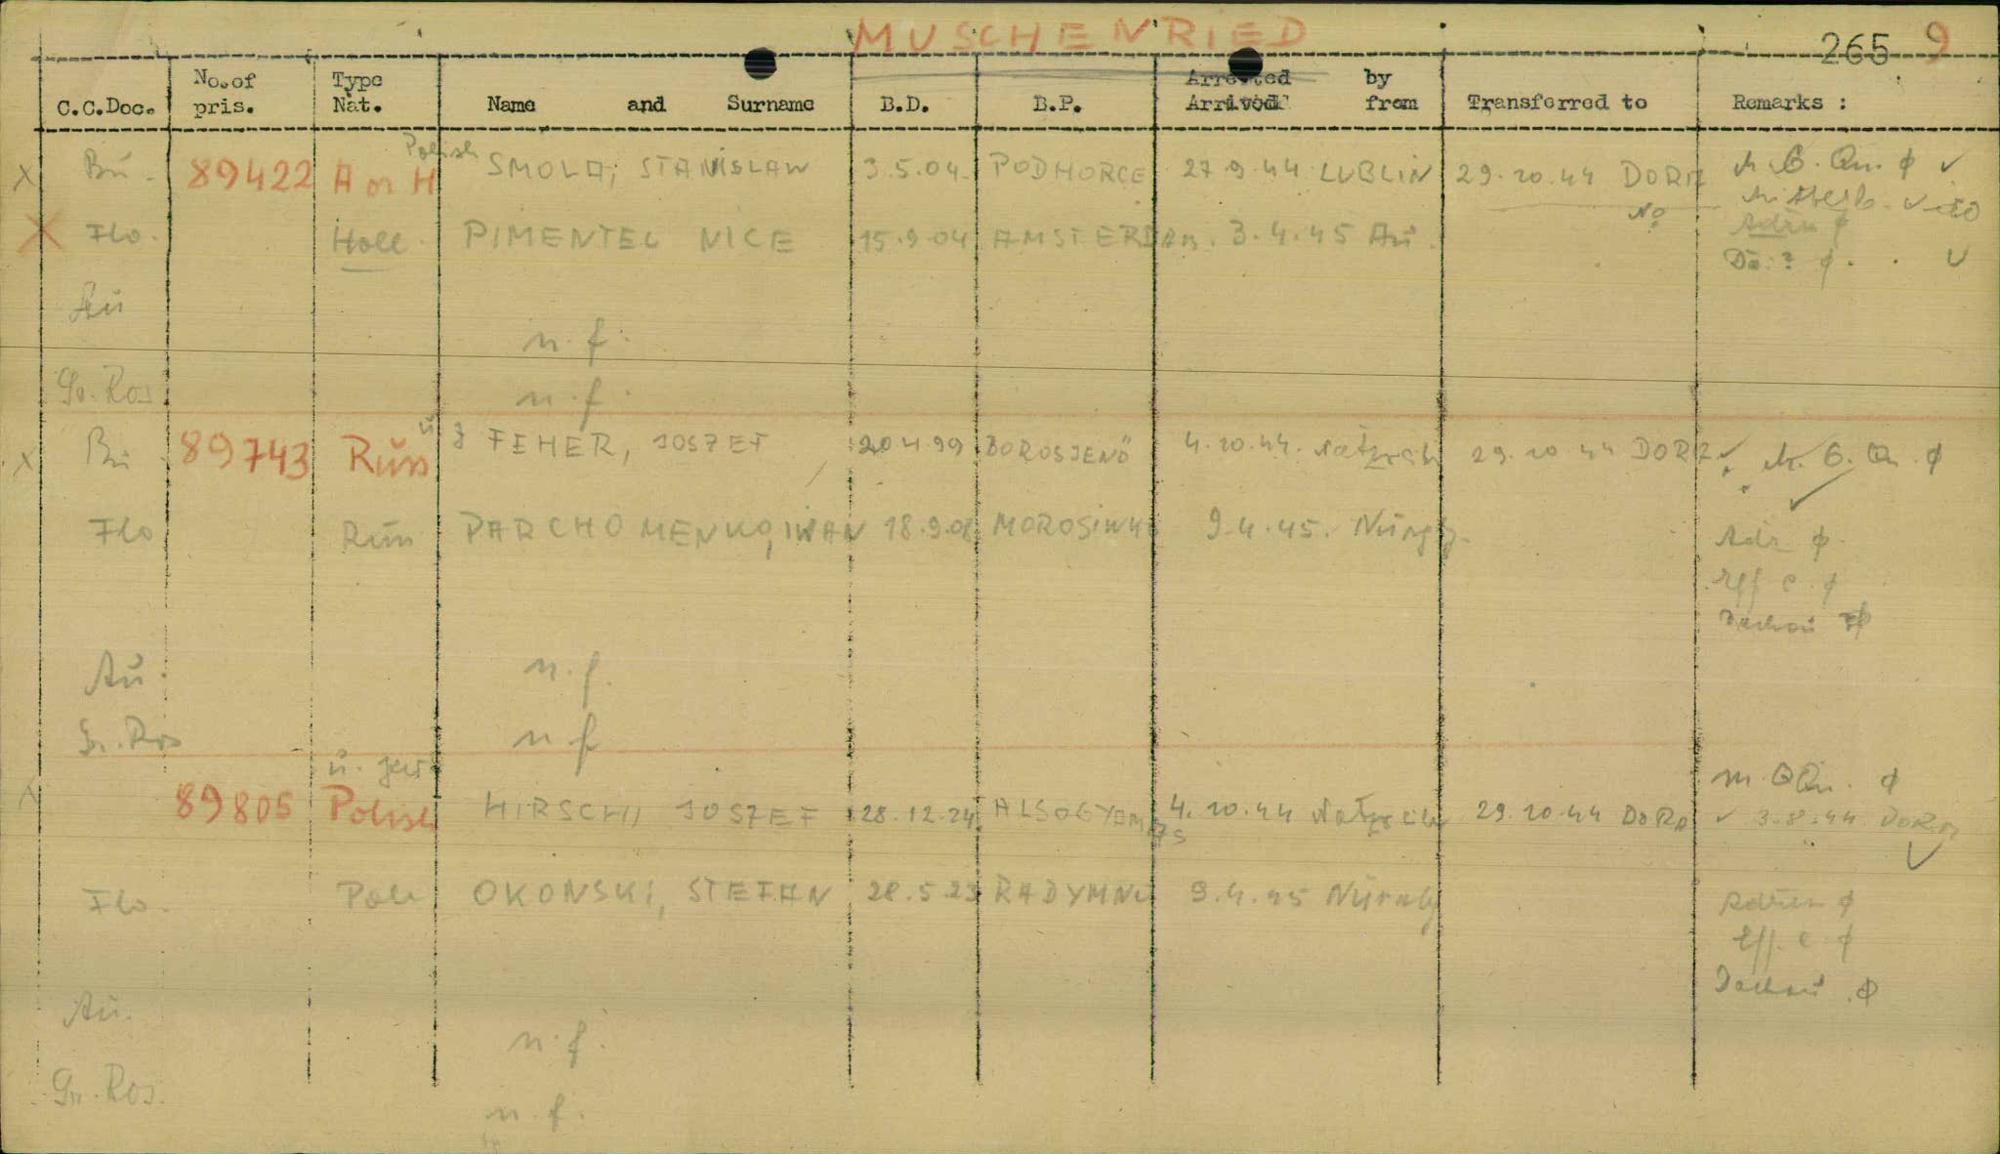 MUSCHENRIED
265 9
C.C.Doc. No.of pris. Type Nat. Name and Surname B.D. B.P. Arrested by Arrived from Transferred to Remarks :
Polish
X Bu. 89422 A or H SMOLA, STANISLAW 3.5.04. PODHORCE 27.9.44 LUBLIN 29.10.44 DORA
X Flo. Holl. PIMENTEL NICE 15.9.04 AMSTERDAM. 3.4.45 Au.
Au
n.f.
Gr. Ros n.f.
X Bu 89743 Russ FEHER, JOSZEF 20.4.99 BOROSJENÖ 4.10.44. Natzw 29.10.44 DORA
Flo Russ PARCHOMENKO, IWAN 18.9.08 9.4.45. Nürbg.
Adr ø
Eff c. ø
Dachau ø
Au. n.f.
Gr. Ros n f
m. Qu. ø
89805 Polish HIRSCH, JOSZEF 28.12.24 4.10.44 29.10.44 DORA ✓ 3.8.44 DORA
Flo. Pole OKONSKI, STEFAN 28.5.23 RADYMNO 9.4.45 Nürnbg
ø
Eff. c. ø
Dachau ø
Au.
n.f.
Gr. Ros.
n.f.